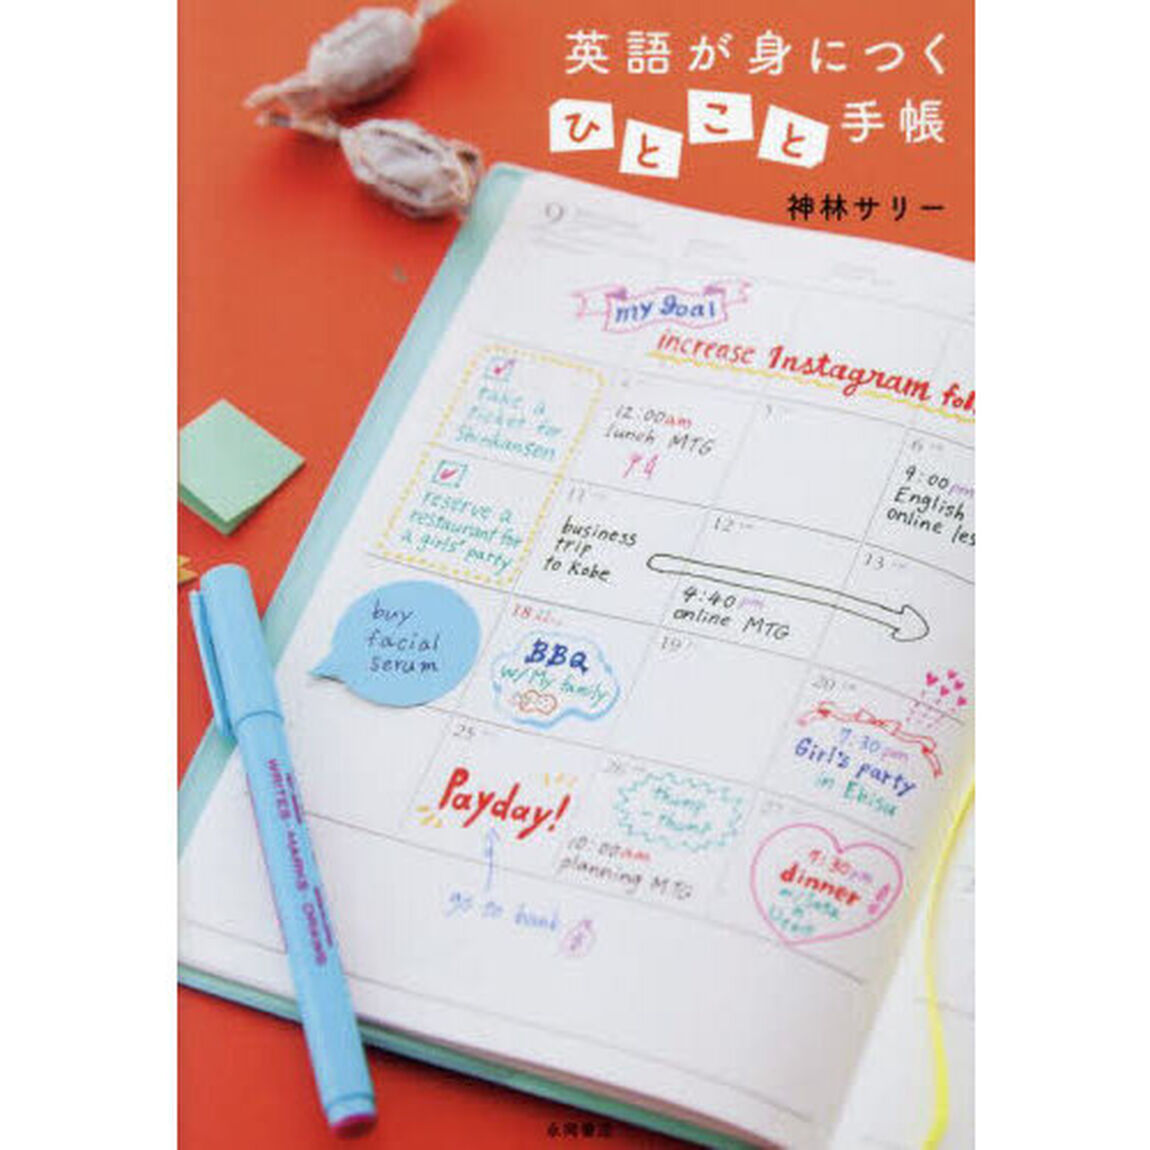 英語が身につく
ひとこと手帳
神林サリー
9
my goal
increase Instagram fol
take a
ticket for
Shinkansen
12:00am
lunch MTG
6
9:00pm
English
online les
reserve a
restaurant for
a girls' party
11
business
trip
to Kobe
12
4:40pm
online MTG
13
buy
facial
serum
18
BBQ
w/ My family
19
20
7:30pm
Girl's party
in Ebisu
25
Payday!
go to bank
26
thump
-thump
10:00am
planning MTG
27
7:30pm
dinner
WRITES · MARKS · DRAWS
永岡書店